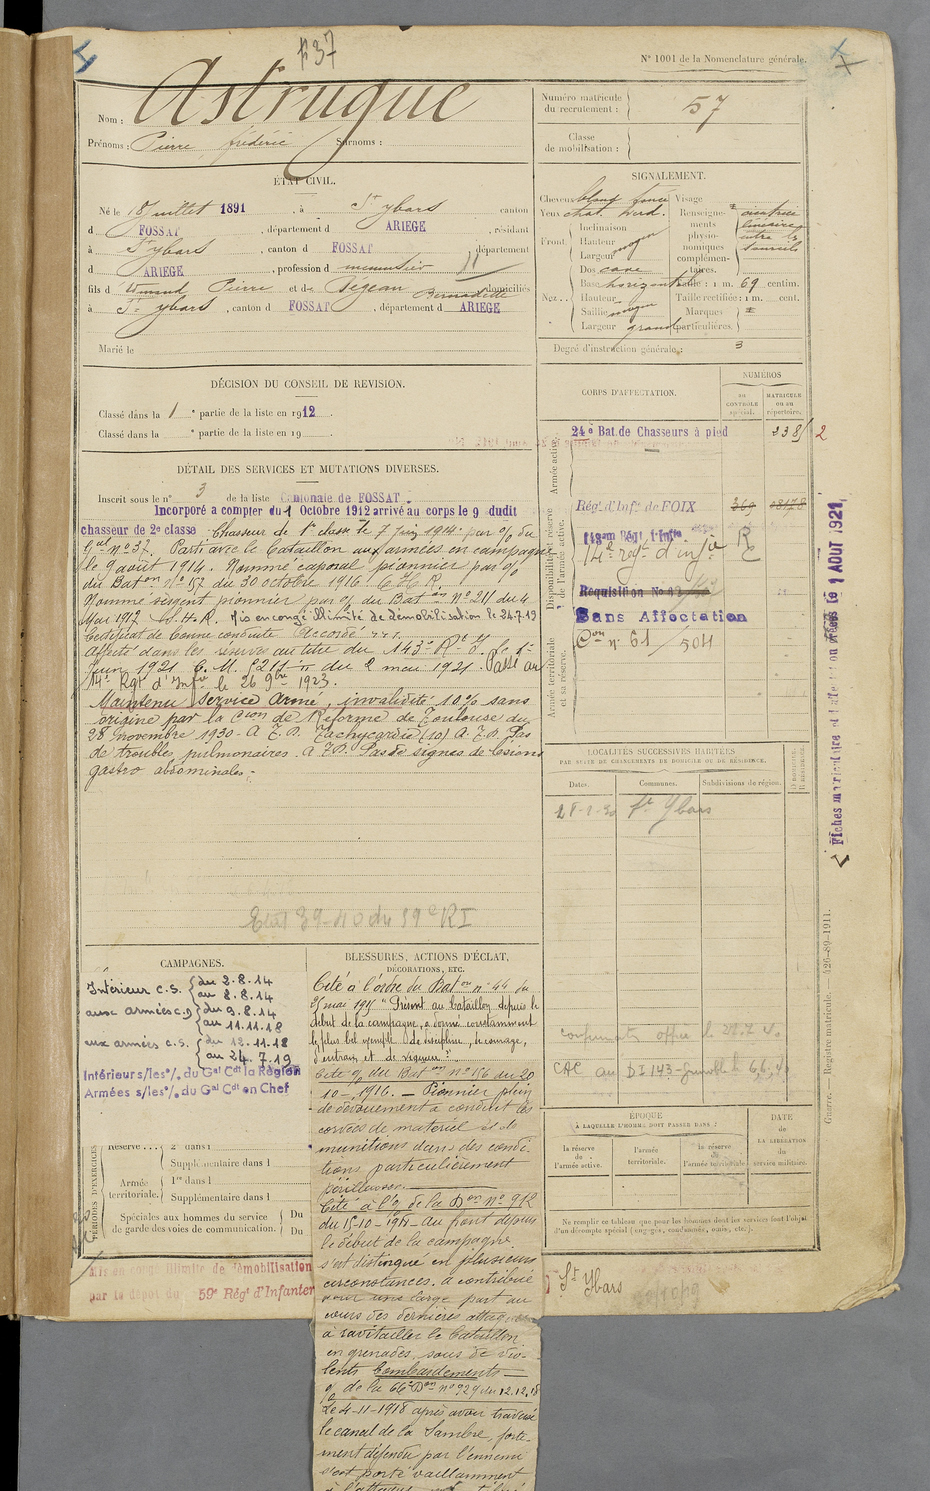 #37
N° 1001 de la Nomenclature générale.
Nom : Astrugue
Prénoms : Pierre, frédéric Surnoms :
Numéro matricule du recrutement : 57
Classe de mobilisation :
ÉTAT CIVIL.
Né le 18 Juillet 1891, à St Ybars canton
d FOSSAT, département d ARIEGE, résidant
à St Ybars, canton d FOSSAT département
d ARIEGE, profession d menuisier
fils d Pierre et de Pegean Bernadette domiciliés
à St Ybars, canton d FOSSAT, département d ARIEGE
Marié le
SIGNALEMENT.
Cheveux blond foncé Visage
Yeux chat. verd. Renseignements physionomiques complémentaires. cicatrice linéaire entre les sourcils
Front. Inclinaison
Hauteur moyen
Largeur
Nez. Dos cave
Base horizontale Taille : 1 m. 69 centim.
Hauteur Taille rectifiée : 1 m. cent.
Saillie moyen Marques
Largeur grand particulières.
Degré d'instruction générale : 3
DÉCISION DU CONSEIL DE REVISION.
Classé dans la 1e partie de la liste en 1912.
Classé dans la e partie de la liste en 19 .
DÉTAIL DES SERVICES ET MUTATIONS DIVERSES.
Inscrit sous le n° 3 de la liste Cantonale de FOSSAT.
Incorporé a compter du 1 Octobre 1912 arrivé au corps le 9 dudit
chasseur de 2e classe Chasseur de 1e classe le 7 juin 1914 par % du
Gal n° 37. Parti avec le bataillon aux armées en campagne
le 9 août 1914. Nommé caporal pionnier par %
du Baton n° 157 du 30 octobre 1916 C H R.
Nommé sergent pionnier par % du Baton N° 211 du 4
Mai 1917 C.H.R. Mis en congé illimité de démobilisation le 24.7.19
Certificat de bonne conduite Accordé
Affecté dans les réserves au titre du 143e Rt I. le 1er
Juin 1921 C. M. du 2 mai 1921. Passé au
14e Rgt d'Infie le 26 9bre 1923.
Maintenu Service Armé, invalidité 10% sans
origine par la Cion de Réforme de Toulouse du
28 novembre 1930 - A.E.P. Tachycardie (10) A.E.P. Pas
de troubles pulmonaires. Pas de signes de lésions
gastro abdominales.
39-40 du 59e RI
CORPS D'AFFECTATION.
NUMÉROS
AU CONTRÔLE spécial.
MATRICULE ou au répertoire.
Armée active.
24e Bat. de Chasseurs à pied 2
Disponibilité et réserve de l'armée active.
Régt d'Infie de FOIX 369
143em Régt. d'Infie
14e regt d'infie
Réquisition No
Sans Affectation
Armée territoriale et sa réserve.
n° 61 / 504
LOCALITÉS SUCCESSIVES HABITÉES
PAR SUITE DE CHANGEMENTS DE DOMICILE OU DE RÉSIDENCE.
Dates. Communes. Subdivisions de région.
St Ybars
Fiches matriculaire et d'affectation créées le 1 AOUT 1921.
Guerre. — Registre matricule. — 426-89-1911.
CAMPAGNES.
Intérieur C.S. du 2.8.14
au 8.8.14
aux armées C.D du 9.8.14
au 11.11.18
aux armées C.S. du 12.11.18
au 24.7.19
Intérieur s/les % du Gal Cdt la Région
Armées s/les % du Gal Cdt en Chef
PÉRIODES D'EXERCICES
Réserve 2e dans l
Supplémentaire dans l
Armée territoriale. 1re dans l
Supplémentaire dans l
Spéciales aux hommes du service Du
de garde des voies de communication. Du
BLESSURES, ACTIONS D'ÉCLAT,
DÉCORATIONS, ETC.
Cité à l'ordre du Baton n° 44 du
mai 1915 "Présent au bataillon depuis le
début de la campagne, a donné constamment
le plus bel exemple de discipline, de courage,
d'entrain et de vigueur".
Cité % du Baton n° 156 du 20
10-1916. — Pionnier plein
de dévouement a conduit des
corvées de matériel et de
munitions dans des condi-
tions particulièrement
périlleuses.
Cité à l'% de la Don n° 912
du 15-10-1918 - Au front depuis
le début de la campagne
s'est distingué en plusieurs
circonstances. a contribué
pour une large part au
cours des dernières attaques
à ravitailler le bataillon
en grenades, sous de vio-
lents bombardements —
% de la 66e Don n° 929 du 12.12.18
Le 4-11-1918 après avoir traversé
le canal de la Sambre, forte-
ment défendu par l'ennemi
s'est porté vaillamment
à l'attaque
CAC au DI 143 - Grenoble
ÉPOQUE
À LAQUELLE L'HOMME DOIT PASSER DANS :
la réserve de l'armée active.
l'armée territoriale.
la réserve de l'armée territoriale.
DATE de LA LIBÉRATION du service militaire.
Ne remplir ce tableau que pour les hommes dont les services font l'objet
d'un décompte spécial (engagés, condamnés, omis, etc.).
Mis en congé illimité de démobilisation
par le dépôt du 59e Régt d'Infanterie
St Ybars